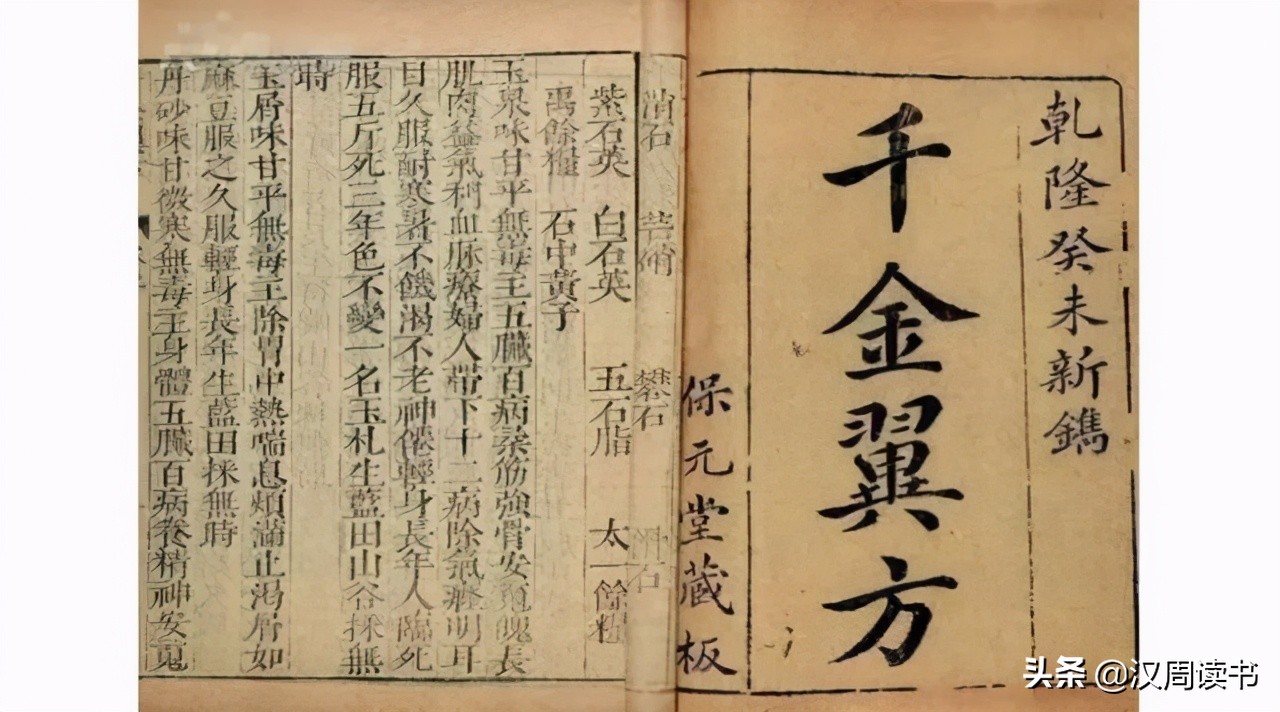 乾隆癸未新鐫
千金翼方
保元堂藏板
滑石
紫石英 白石英 五石脂 太一餘糧
禹餘糧 石中黃子
玉泉味甘平無毒主五臟百病柔筋強骨安䰟魄長
肌肉益氣利血脉療婦人帶下十二病除氣癃明耳
目久服耐寒暑不饑渴不老神僊輕身長年人臨死
服五斤死三年色不變一名玉札生藍田山谷採無
時
玉屑味甘平無毒主除胃中熱喘息煩滿止渴屑如
麻豆服之久服輕身長年生藍田採無時
丹砂味甘微寒無毒主身體五臟百病養精神安䰟
头条 @汉周读书